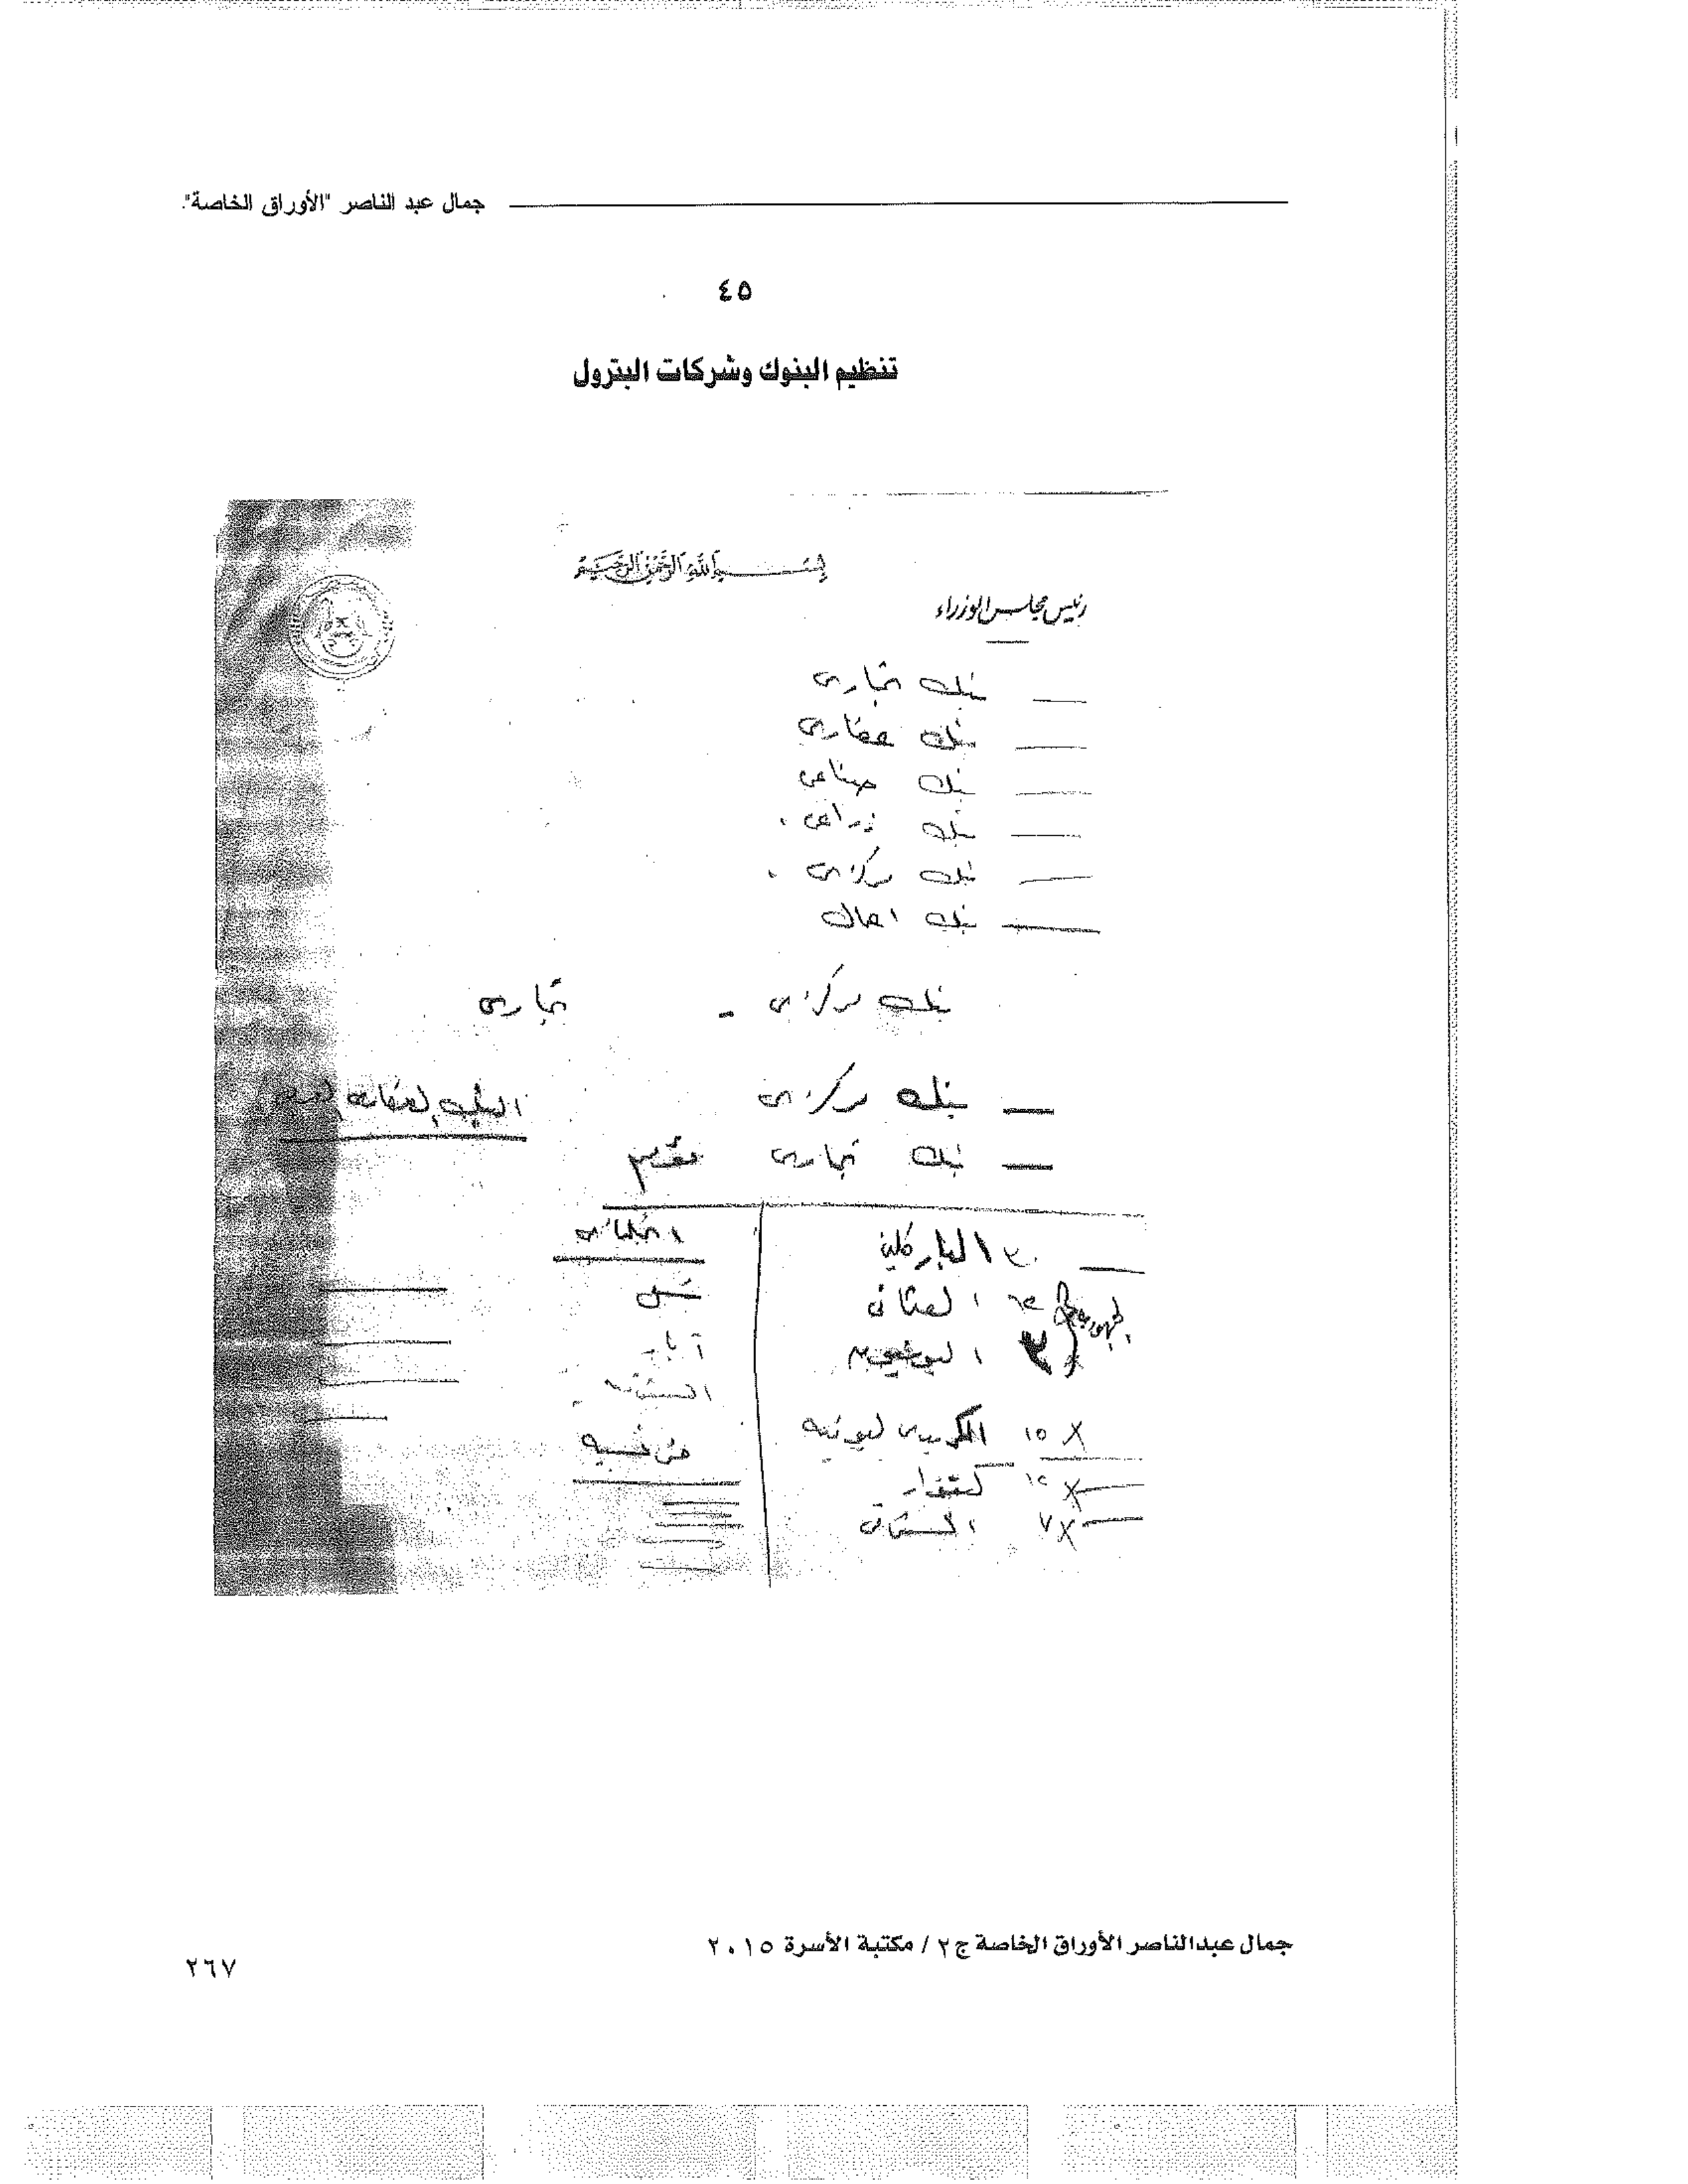 جمال عبد الناصر "الأوراق الخاصة".
٤٥
تنظيم البنوك وشركات البترول
بسم الله الرحمن الرحيم
رئيس مجلس الوزراء
— بنك تجارى
— بنك عقارى
— بنك صناعى
— بنك زراعى .
— بنك مركزى .
— بنك اعمال
بنك مركزى - تجارى
— بنك مركزى
— بنك تجارى
— ٣٠ الباركليز
العثمانى
٣
شل
آبار
X ١٥ الكريدى ليونيه
فرنسيه
X ١٢
X ٧
جمال عبدالناصر الأوراق الخاصة ج٢ / مكتبة الأسرة ٢٠١٥
٢٦٧